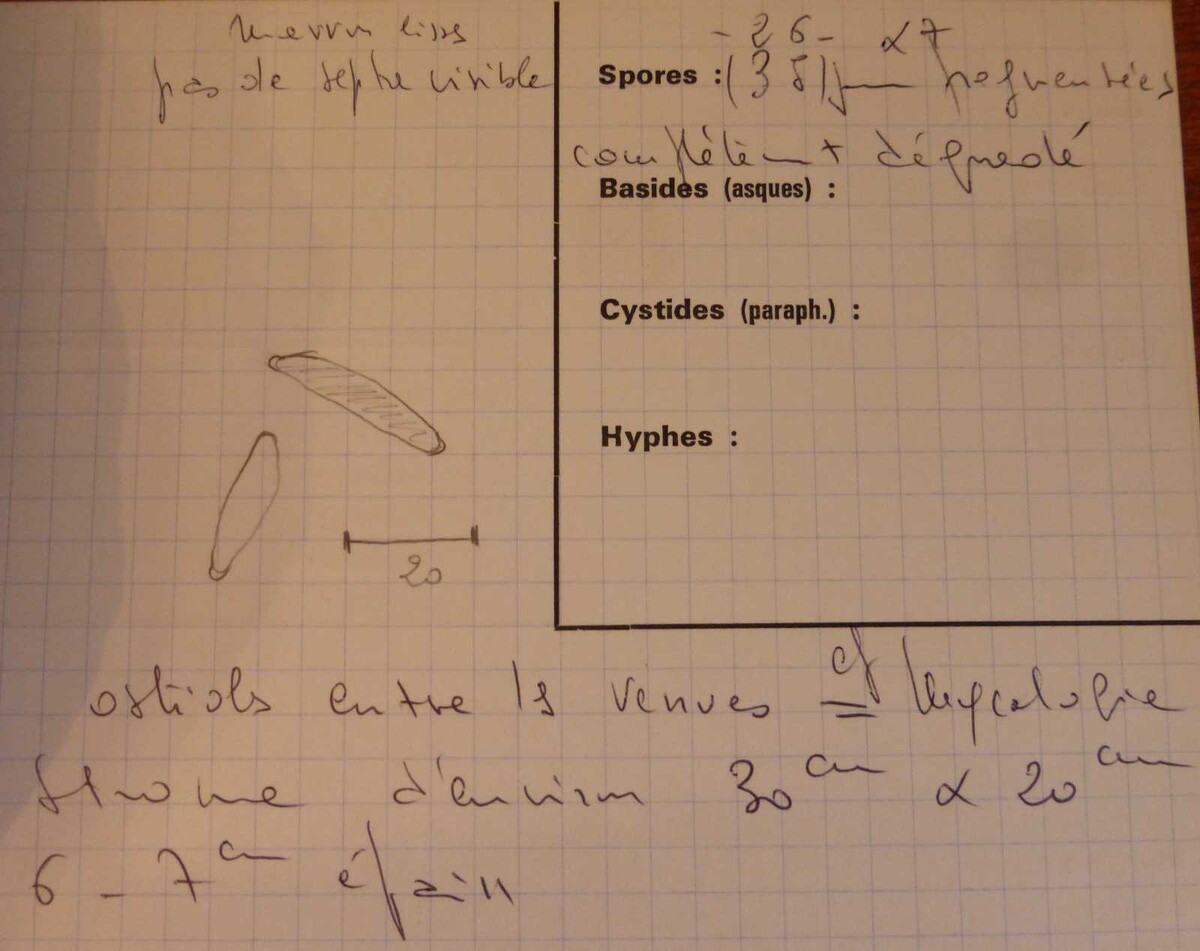 marron lisse
pas de septe visible
- 26 - x 7
Spores : (35) fragmentées
complètemt dégradé
Basides (asques) :
Cystides (paraph.) :
Hyphes :
20
ostiols entre ls verrues = cf Mycologie
Strome d'environ 30 cm x 20 cm
6 - 7 cm épaiss